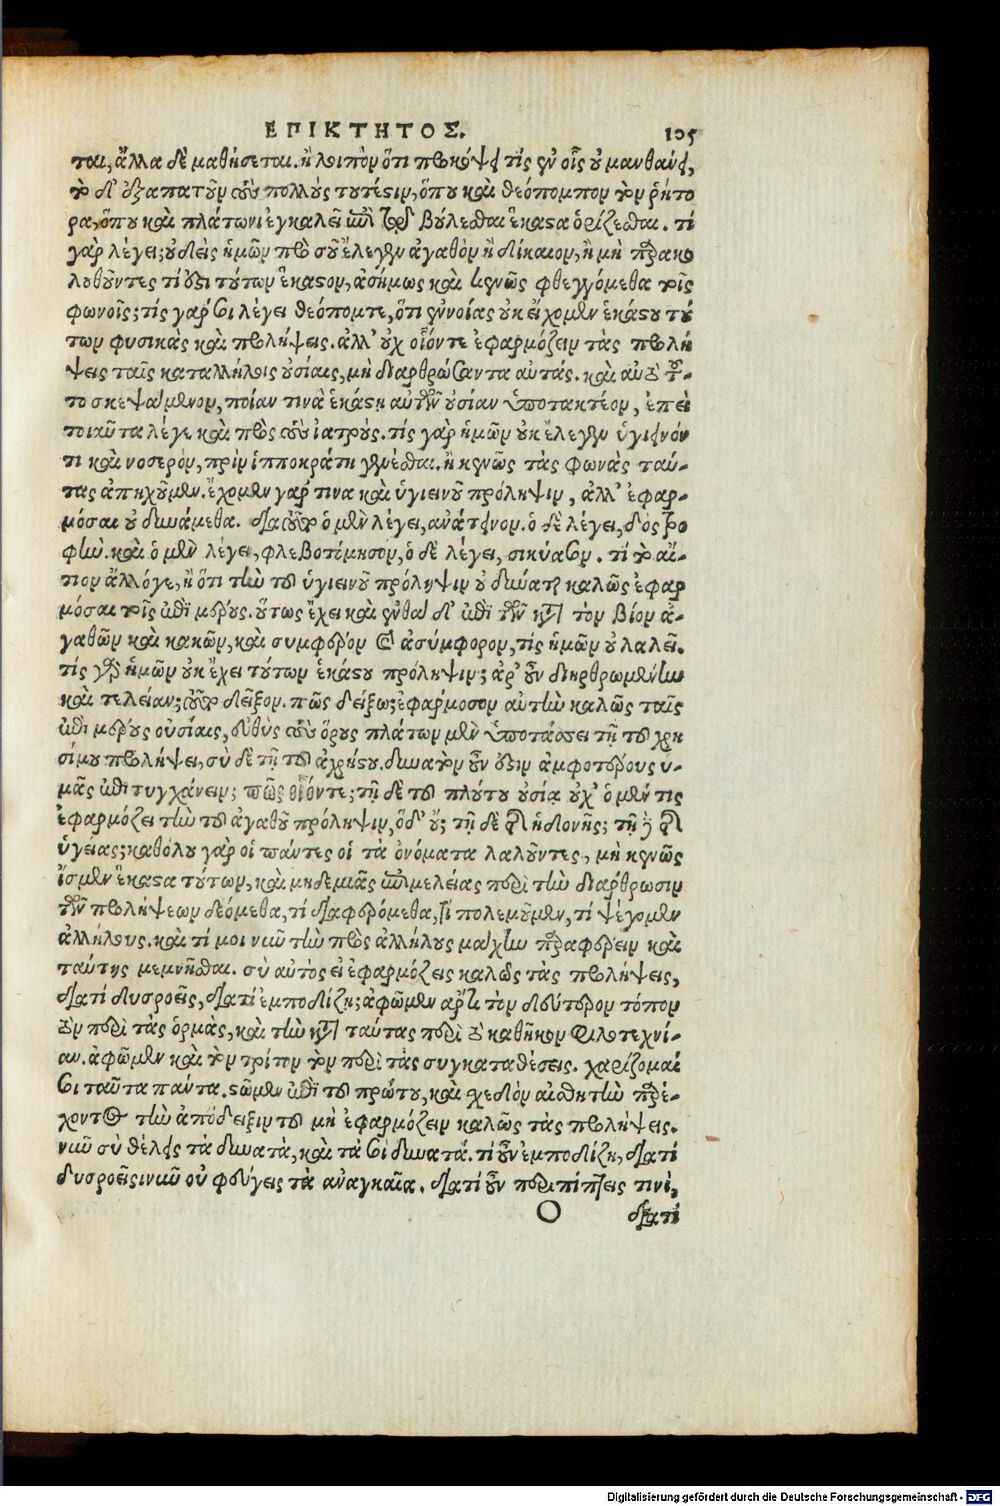 ΕΠΙΚΤΗΤΟΣ. 105
ται, ἄλλα δὲ μαθήσεται. ἢ λοιπὸν ὅτι προκόψει τις ἐν οἷς οὐ μανθάνει,
τὸ δ' ἐξαπατῶν τοὺς πολλοὺς τοῦτέστιν, ὅπου καὶ θεόπομπον τὸν ῥήτο
ρα, ὅπου καὶ πλάτωνι ἐγκαλεῖ ἐπὶ τῷ βούλεσθαι ἕκαστα ὁρίζεσθαι. τί
γὰρ λέγει; οὐδεὶς ἡμῶν πρὸ σοῦ ἔλεγεν ἀγαθὸν ἢ δίκαιον, ἢ μὴ παρακο
λουθοῦντες τί ἐστι τούτων ἕκαστον, ἀσήμως καὶ κενῶς φθεγγόμεθα τὰς
φωνάς; τίς γάρ σοι λέγει θεόπομπε, ὅτι ἐννοίας οὐκ εἴχομεν ἑκάστου τού
των φυσικὰς καὶ προλήψεις. ἀλλ' οὐχ οἷόντε ἐφαρμόζειν τὰς προλή
ψεις ταῖς καταλλήλοις οὐσίαις, μὴ διαρθρώσαντα αὐτάς. καὶ αὐτὸ τοῦ-
το σκεψάμενον, ποίαν τινὰ ἑκάστη αὐτῶν οὐσίαν ὑποτακτέον, ἐπεὶ
τοιαῦτα λέγε καὶ πρὸς τοὺς ἰατρούς. τίς γὰρ ἡμῶν οὐκ ἔλεγεν ὑγιεινόν
τι καὶ νοσερὸν, πρὶν ἱπποκράτη γενέσθαι. ἢ κενῶς τὰς φωνὰς ταύ-
τας ἀπηχοῦμεν. ἔχομεν γάρ τινα καὶ ὑγιεινοῦ πρόληψιν, ἀλλ' ἐφαρ-
μόσαι οὐ δυνάμεθα. διὰ τοῦτο ὁ μὲν λέγει, ἀνάτεινον. ὁ δὲ λέγει, δὸς τρο
φήν. καὶ ὁ μὲν λέγει, φλεβοτόμησον, ὁ δὲ λέγει, σικύασον. τί τὸ αἴ-
τιον ἄλλόγε, ἢ ὅτι τὴν τοῦ ὑγιεινοῦ πρόληψιν οὐ δύναται καλῶς ἐφαρ
μόσαι τοῖς ἐπὶ μέρους. οὕτως ἔχει καὶ ἐνθάδ' ἐπὶ τῶν κατὰ τὸν βίον ἀ-
γαθῶν καὶ κακῶν, καὶ συμφέρον καὶ ἀσύμφορον, τίς ἡμῶν οὐ λαλεῖ.
τίς γὰρ ἡμῶν οὐκ ἔχει τούτων ἑκάστου πρόληψιν; ἆρ' οὖν διηρθρωμένην
καὶ τελείαν; τοῦτο δεῖξον. πῶς δείξω; ἐφάρμοσον αὐτὴν καλῶς ταῖς
ἐπὶ μέρους οὐσίαις, εὐθὺς τοὺς ὅρους πλάτων μὲν ὑποτάσσει τῇ τοῦ χρη
σίμου προλήψει, σὺ δὲ τῇ τοῦ ἀχρήστου. δυνατὸν οὖν ἐστιν ἀμφοτέρους ὑ-
μᾶς ἐπιτυγχάνειν; πῶς οἷόντε; τῇ δὲ τοῦ πλούτου οὐσίᾳ οὐχ' ὁ μέν τις
ἐφαρμόζει τὴν τοῦ ἀγαθοῦ πρόληψιν, ὁ δ' οὔ; τῇ δὲ τῆς ἡδονῆς; τῇ δὲ τῆς
ὑγείας; καθόλου γὰρ οἱ πάντες οἱ τὰ ὀνόματα λαλοῦντες, μὴ κενῶς
ἴσμεν ἕκαστα τούτων, καὶ μηδεμιᾶς ἐπιμελείας περὶ τὴν διάρθρωσιν
τῶν προλήψεων δεόμεθα, τί διαφερόμεθα, τί πολεμοῦμεν, τί ψέγομεν
ἀλλήλους. καὶ τί μοι νῦν τὴν πρὸς ἀλλήλους μάχην παραφέρειν καὶ
ταύτης μεμνῆσθαι. σὺ αὐτὸς εἰ ἐφαρμόζεις καλῶς τὰς προλήψεις,
διατί δυσροεῖς, διατί ἐμποδίζῃ; ἀφῶμεν ἄρτι τὸν δεύτερον τόπον
τὸν περὶ τὰς ὁρμὰς, καὶ τὴν κατὰ ταύτας περὶ τὸ καθῆκον φιλοτεχνί-
αν. ἀφῶμεν καὶ τὸν τρίτον τὸν περὶ τὰς συγκαταθέσεις. χαρίζομαί
σοι ταῦτα πάντα. στῶμεν ἐπὶ τοῦ πρώτου, καὶ σχεδὸν αἰσθητὴν παρέ-
χοντος τὴν ἀπόδειξιν τοῦ μὴ ἐφαρμόζειν καλῶς τὰς προλήψεις.
νῦν σὺ θέλεις τὰ δυνατὰ, καὶ τὰ σοὶ δυνατά. τί οὖν ἐμποδίζῃ, διατί
δυσροεῖς; νῦν οὐ φεύγεις τὰ ἀναγκαῖα. διατί οὖν περιπίπτεις τινί,
O διατί
Digitalisierung gefördert durch die Deutsche Forschungsgemeinschaft - DFG